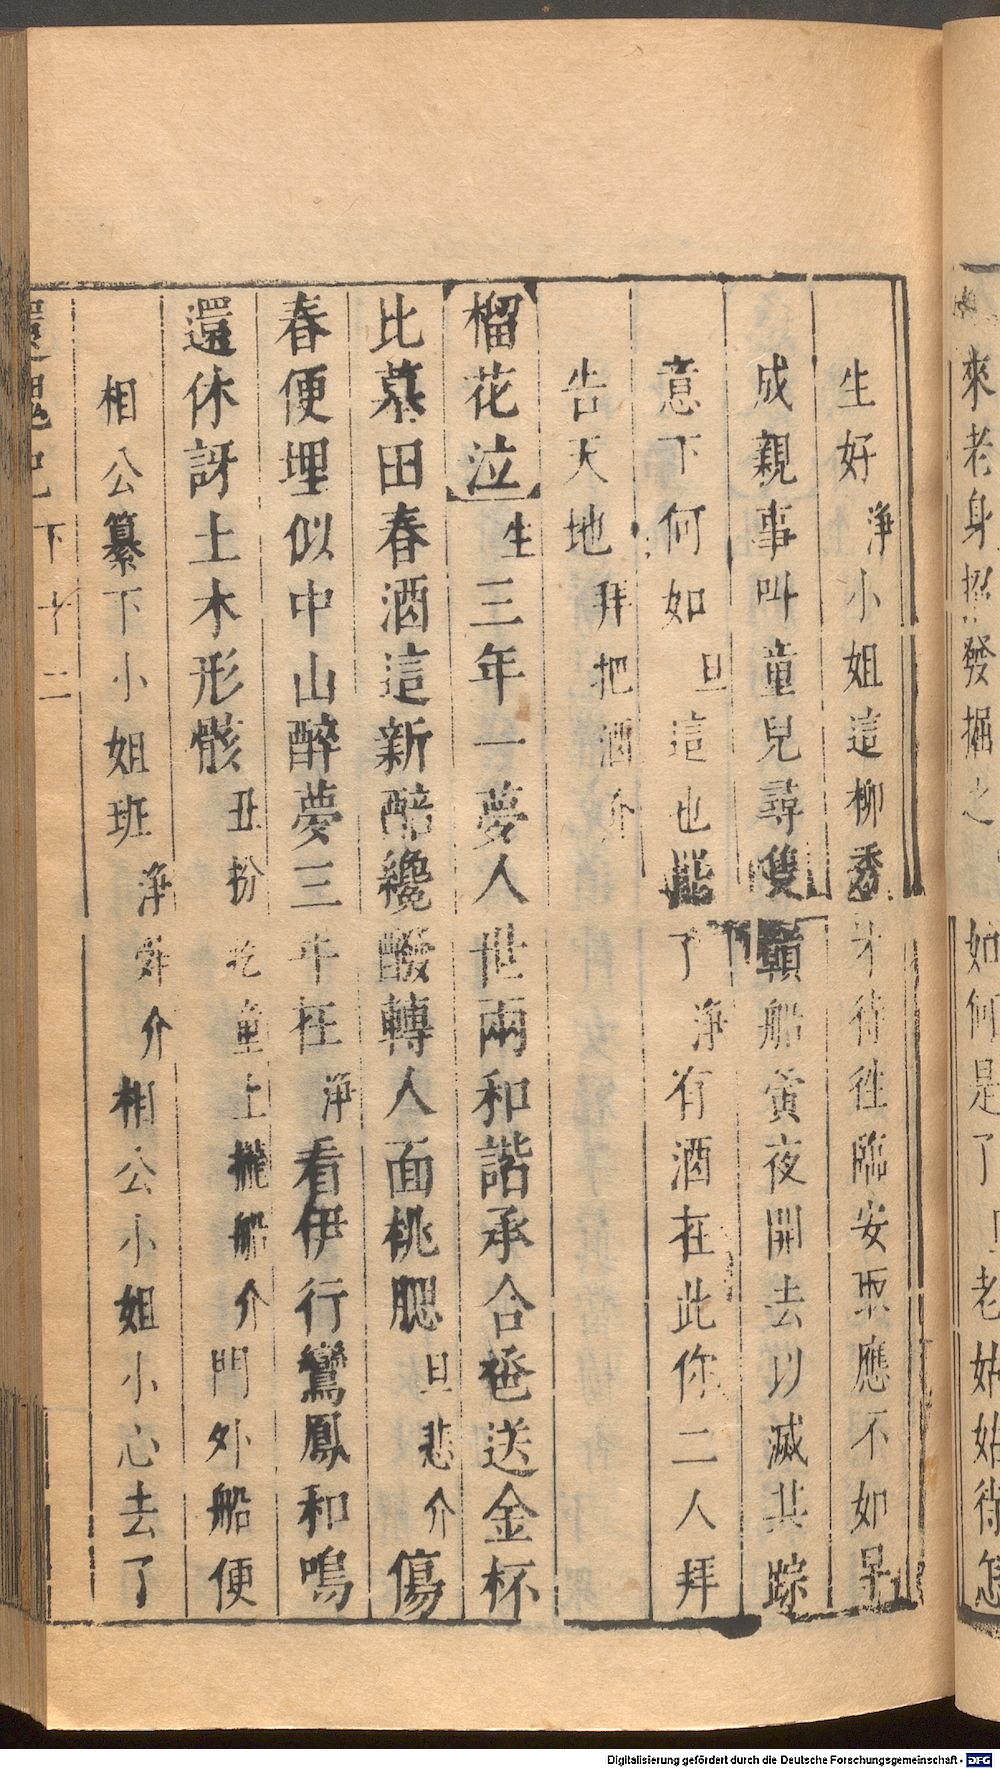 來老身招發掘之如何是了旦老姑姑待怎
生好淨小姐這柳秀才待往臨安取應不如早
成親事叫童兒尋隻贛船夤夜開去以滅其踪
意下何如旦這也罷了淨有酒在此你二人拜
告天地拜把酒介
榴花泣生三年一夢人世兩和諧承合巹送金杯
比墓田春酒這新醅纔醱轉人面桃腮旦悲介傷
春便埋似中山醉夢三年在淨看伊行鸞鳳和鳴
還休訝土木形骸丑扮疙童上攏船介門外船便
相公纂下小姐班淨辭介相公小姐小心去了
還魂記下 十二
Digitalisierung gefördert durch die Deutsche Forschungsgemeinschaft - DFG